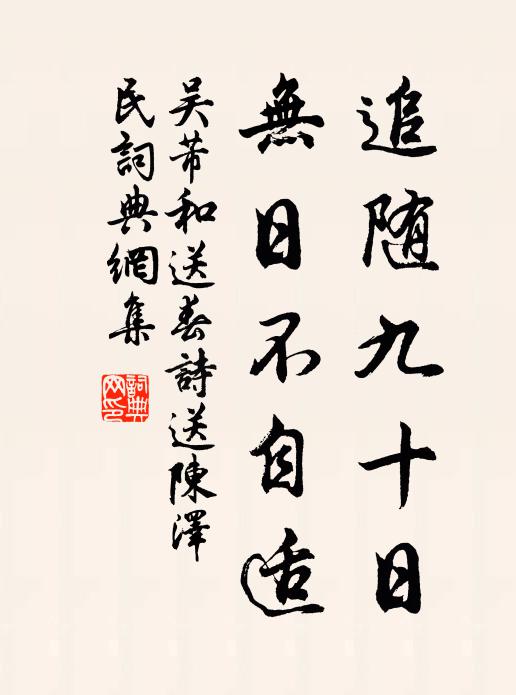 追随九十日
無日不自适
吴芾和送春詩送陳澤
民詞典網集
詞典網印